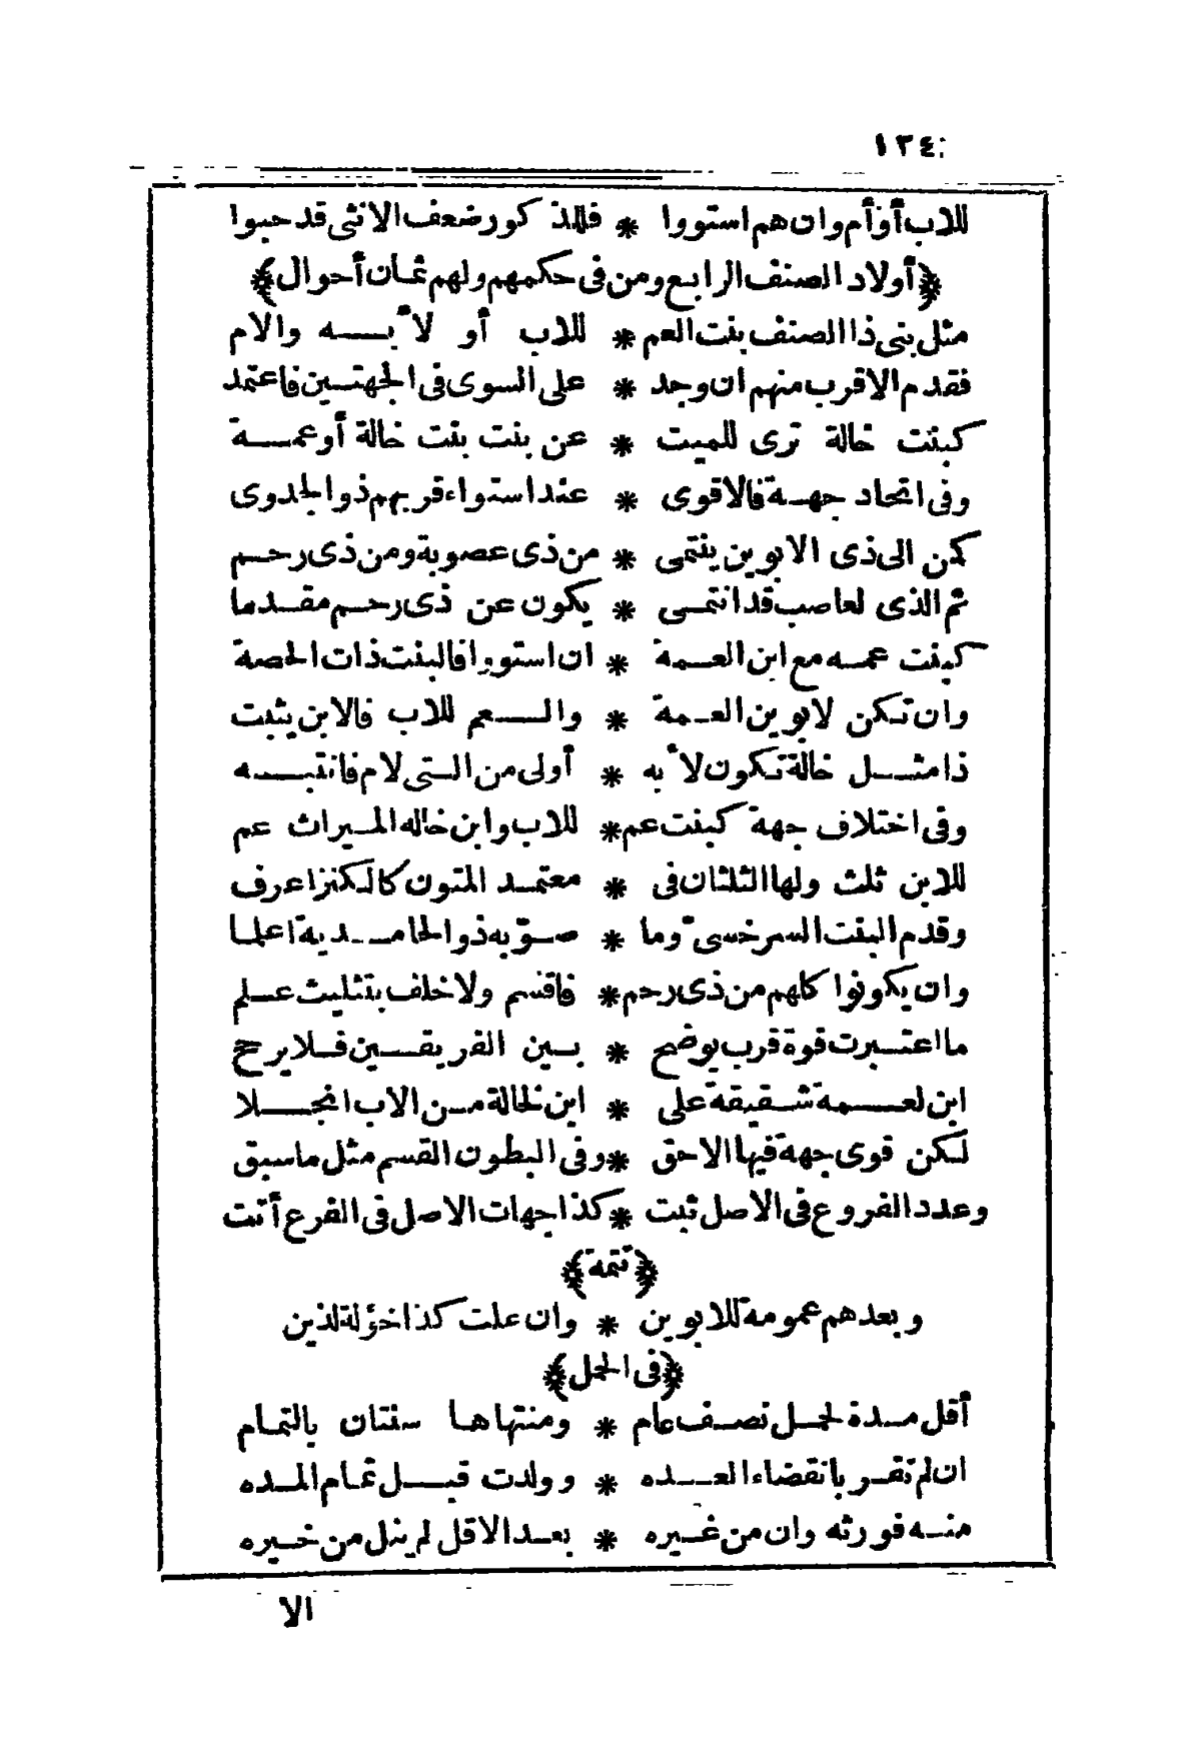 ١٣٤
للاب أو أم وان هم استووا * فللذ كور ضعف الانثى قد حبوا
﴿أولاد الصنف الرابع ومن فى حكمهم ولهم ثمان أحوال﴾
مثل بنى ذا الصنف بنت العم * للاب أو لأبـه والام
فقدم الاقرب منهم ان وجد * على السوى فى الجهتين فاعتمد
كبنت خالة ترى للميت * عن بنت بنت خالة أو عمة
وفى اتحاد جهة فالاقوى * عند استواء قربهم ذو الجدوى
كمن الى ذى الابوين ينتمى * من ذى عصوبة ومن ذى رحم
ثم الذى لعاصب قد انتمى * يكون عن ذى رحم مقدما
كبنت عمه مع ابن العمة * ان استووا فالبنت ذات الحصة
وان تكن لابوين العمة * والعم للاب فالابن يثبت
ذا مثل خالة تكون لأبه * أولى من التى لام فانتبه
وفى اختلاف جهة كبنت عم * للاب وابن خاله الميراث عم
للابن ثلث ولها الثلثان فى * معتمد المتون كالكنز اعرف
وقدم البنت السرخسى وما * صوّبه ذو الحامدية اعلما
وان يكونوا كلهم من ذى رحم * فاقسم ولا خلف بتثليث علم
ما اعتبرت قوة قرب يوضح * بين الفريقين فلا يرجح
ابن لعمة شقيقة على * ابن لخالة من الاب انجلا
لكن قوى جهة فيها الاحق * وفى البطون القسم مثل ما سبق
وعدد الفروع فى الاصل ثبت * كذا جهات الاصل فى الفرع أتت
﴿تتمة﴾
وبعدهم عمومة للابوين * وان علت كذا خؤلة لذين
﴿فى الحمل﴾
أقل مدة لحمل نصف عام * ومنتهاها سنتان بالتمام
ان لم تقر بانقضاء العده * وولدت قبل تمام المده
منه فورثه وان من غيره * بعد الاقل لم ينل من خيره
الا